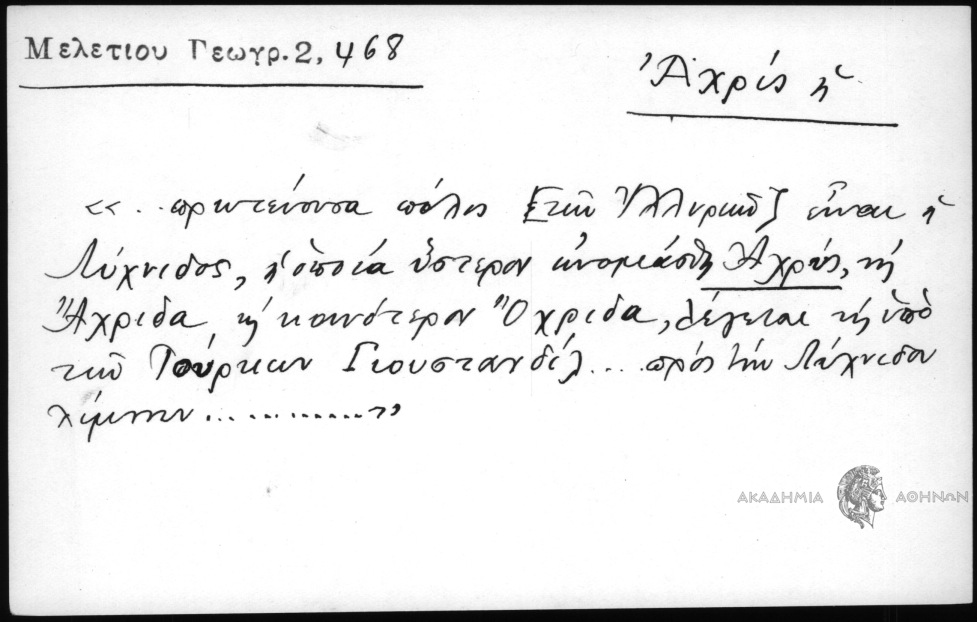 Μελετίου Γεωγρ. 2, 468
Ἀχρίς ἡ
«.. πρωτεύουσα πόλις [τοῦ Ἰλλυρικοῦ] εἶναι ἡ
Λύχνιδος, ἡ ὁποία ὕστερον ὠνομάσθη Ἀχρίς, κὴ
Ἄχριδα, κὴ κοινότερον Ὄχριδα, λέγεται κὴ ὑπὸ
τῶν Τούρκων Γιουστανδίλ.... πρὸς τὴν Λύχνιδον
λίμνην ...............»
ΑΚΑΔΗΜΙΑ ΑΘΗΝΩΝ